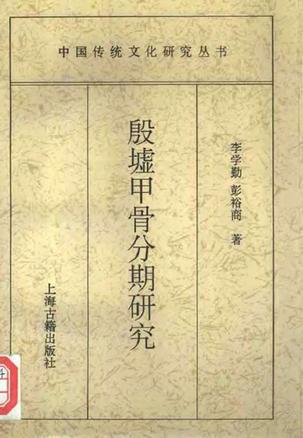 中国传统文化研究丛书
李学勤 彭裕商 著
殷墟甲骨分期研究
上海古籍出版社